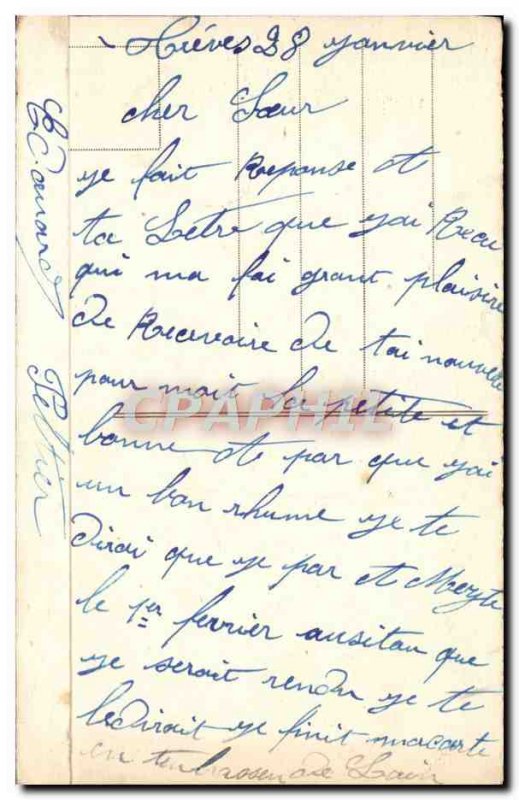 28 yanvier
cher Sœur
ye fait Reponse et
ta Letre que yai Recu
qui ma fai grant plaisire
de Recevoire de tai nouvelle
pour moit la petite et
CPAPHIL
bonne et par que yai
un bon rhume ye te
dirai que ye par et
le 1er fevrier ausitau que
ye serait rendu ye te
ledirait ye finit macarte
en tenbrassen de Loin
Edouard Peltier